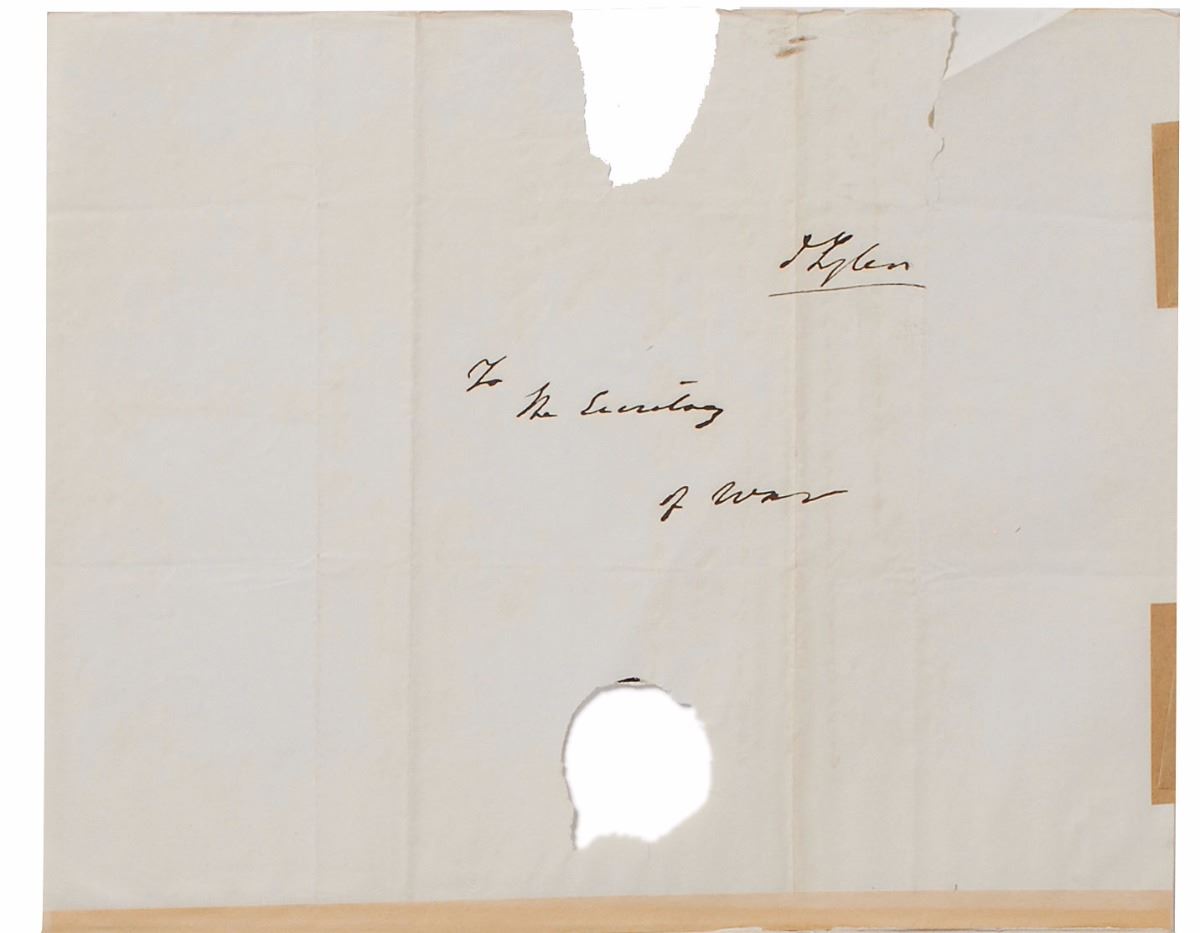 J Tyler
To
the Secretary
of War